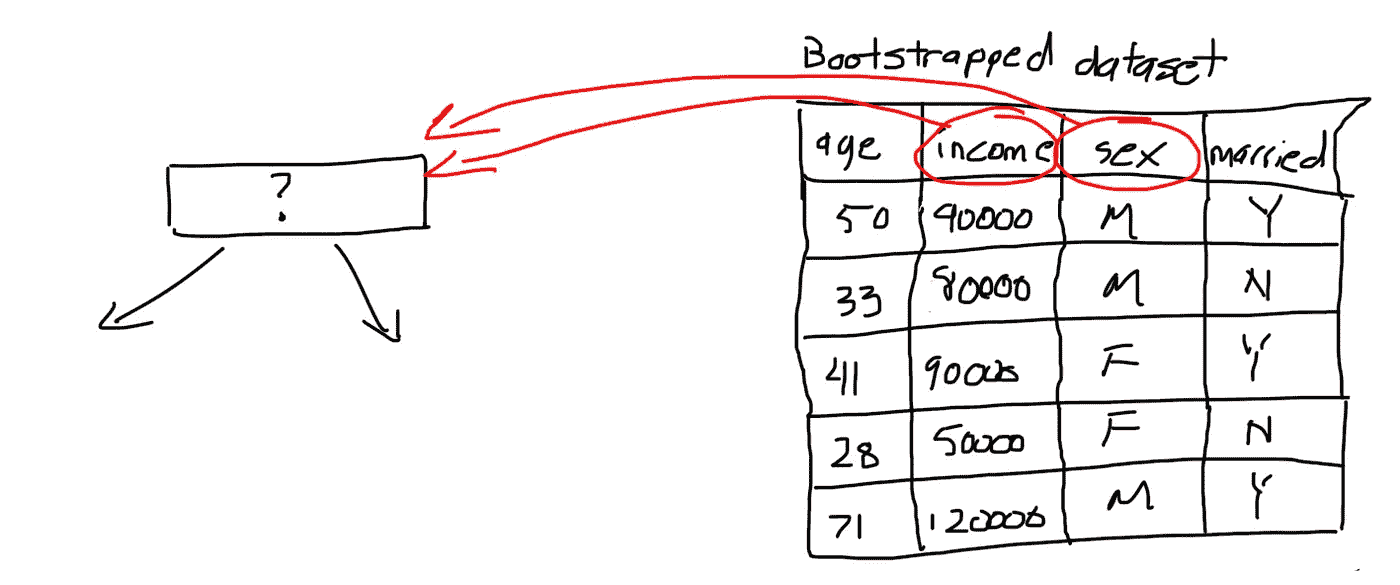 Bootstrapped dataset
age income sex married
?
50 90000 M Y
33 80000 M N
41 90000 F Y
28 50000 F N
71 120000 M Y